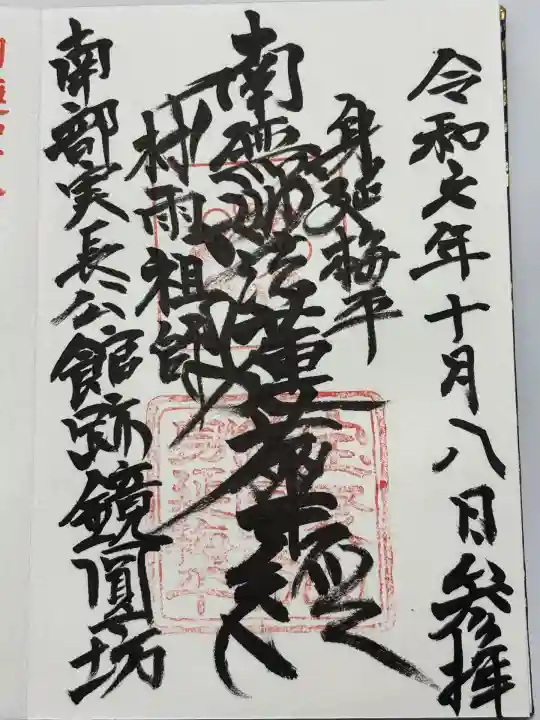 令和六年十月八日参拝
身延梅平
南無妙法蓮華経
村雨祖師
南部実長公館跡鏡圓坊